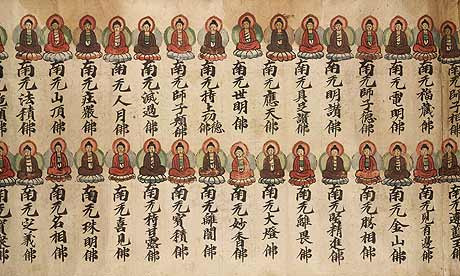 南无師子相佛
南无福藏佛
南无電明佛
南无師子德佛
南无明讚佛
南无具足讚佛
南无應天佛
南无世明佛
南无持上功德佛
南无師子頰佛
南无滅過佛
南无人月佛
南无莊嚴佛
南无山頂佛
南无法積佛
南无見有邊佛
南无金山佛
南无勝相佛
南无堅精進佛
南无離畏佛
南无大燈佛
南无妙香佛
南无離闇佛
南无寶積佛
南无持甘露佛
南无喜見佛
南无珠明佛
南无名相佛
南无定義佛